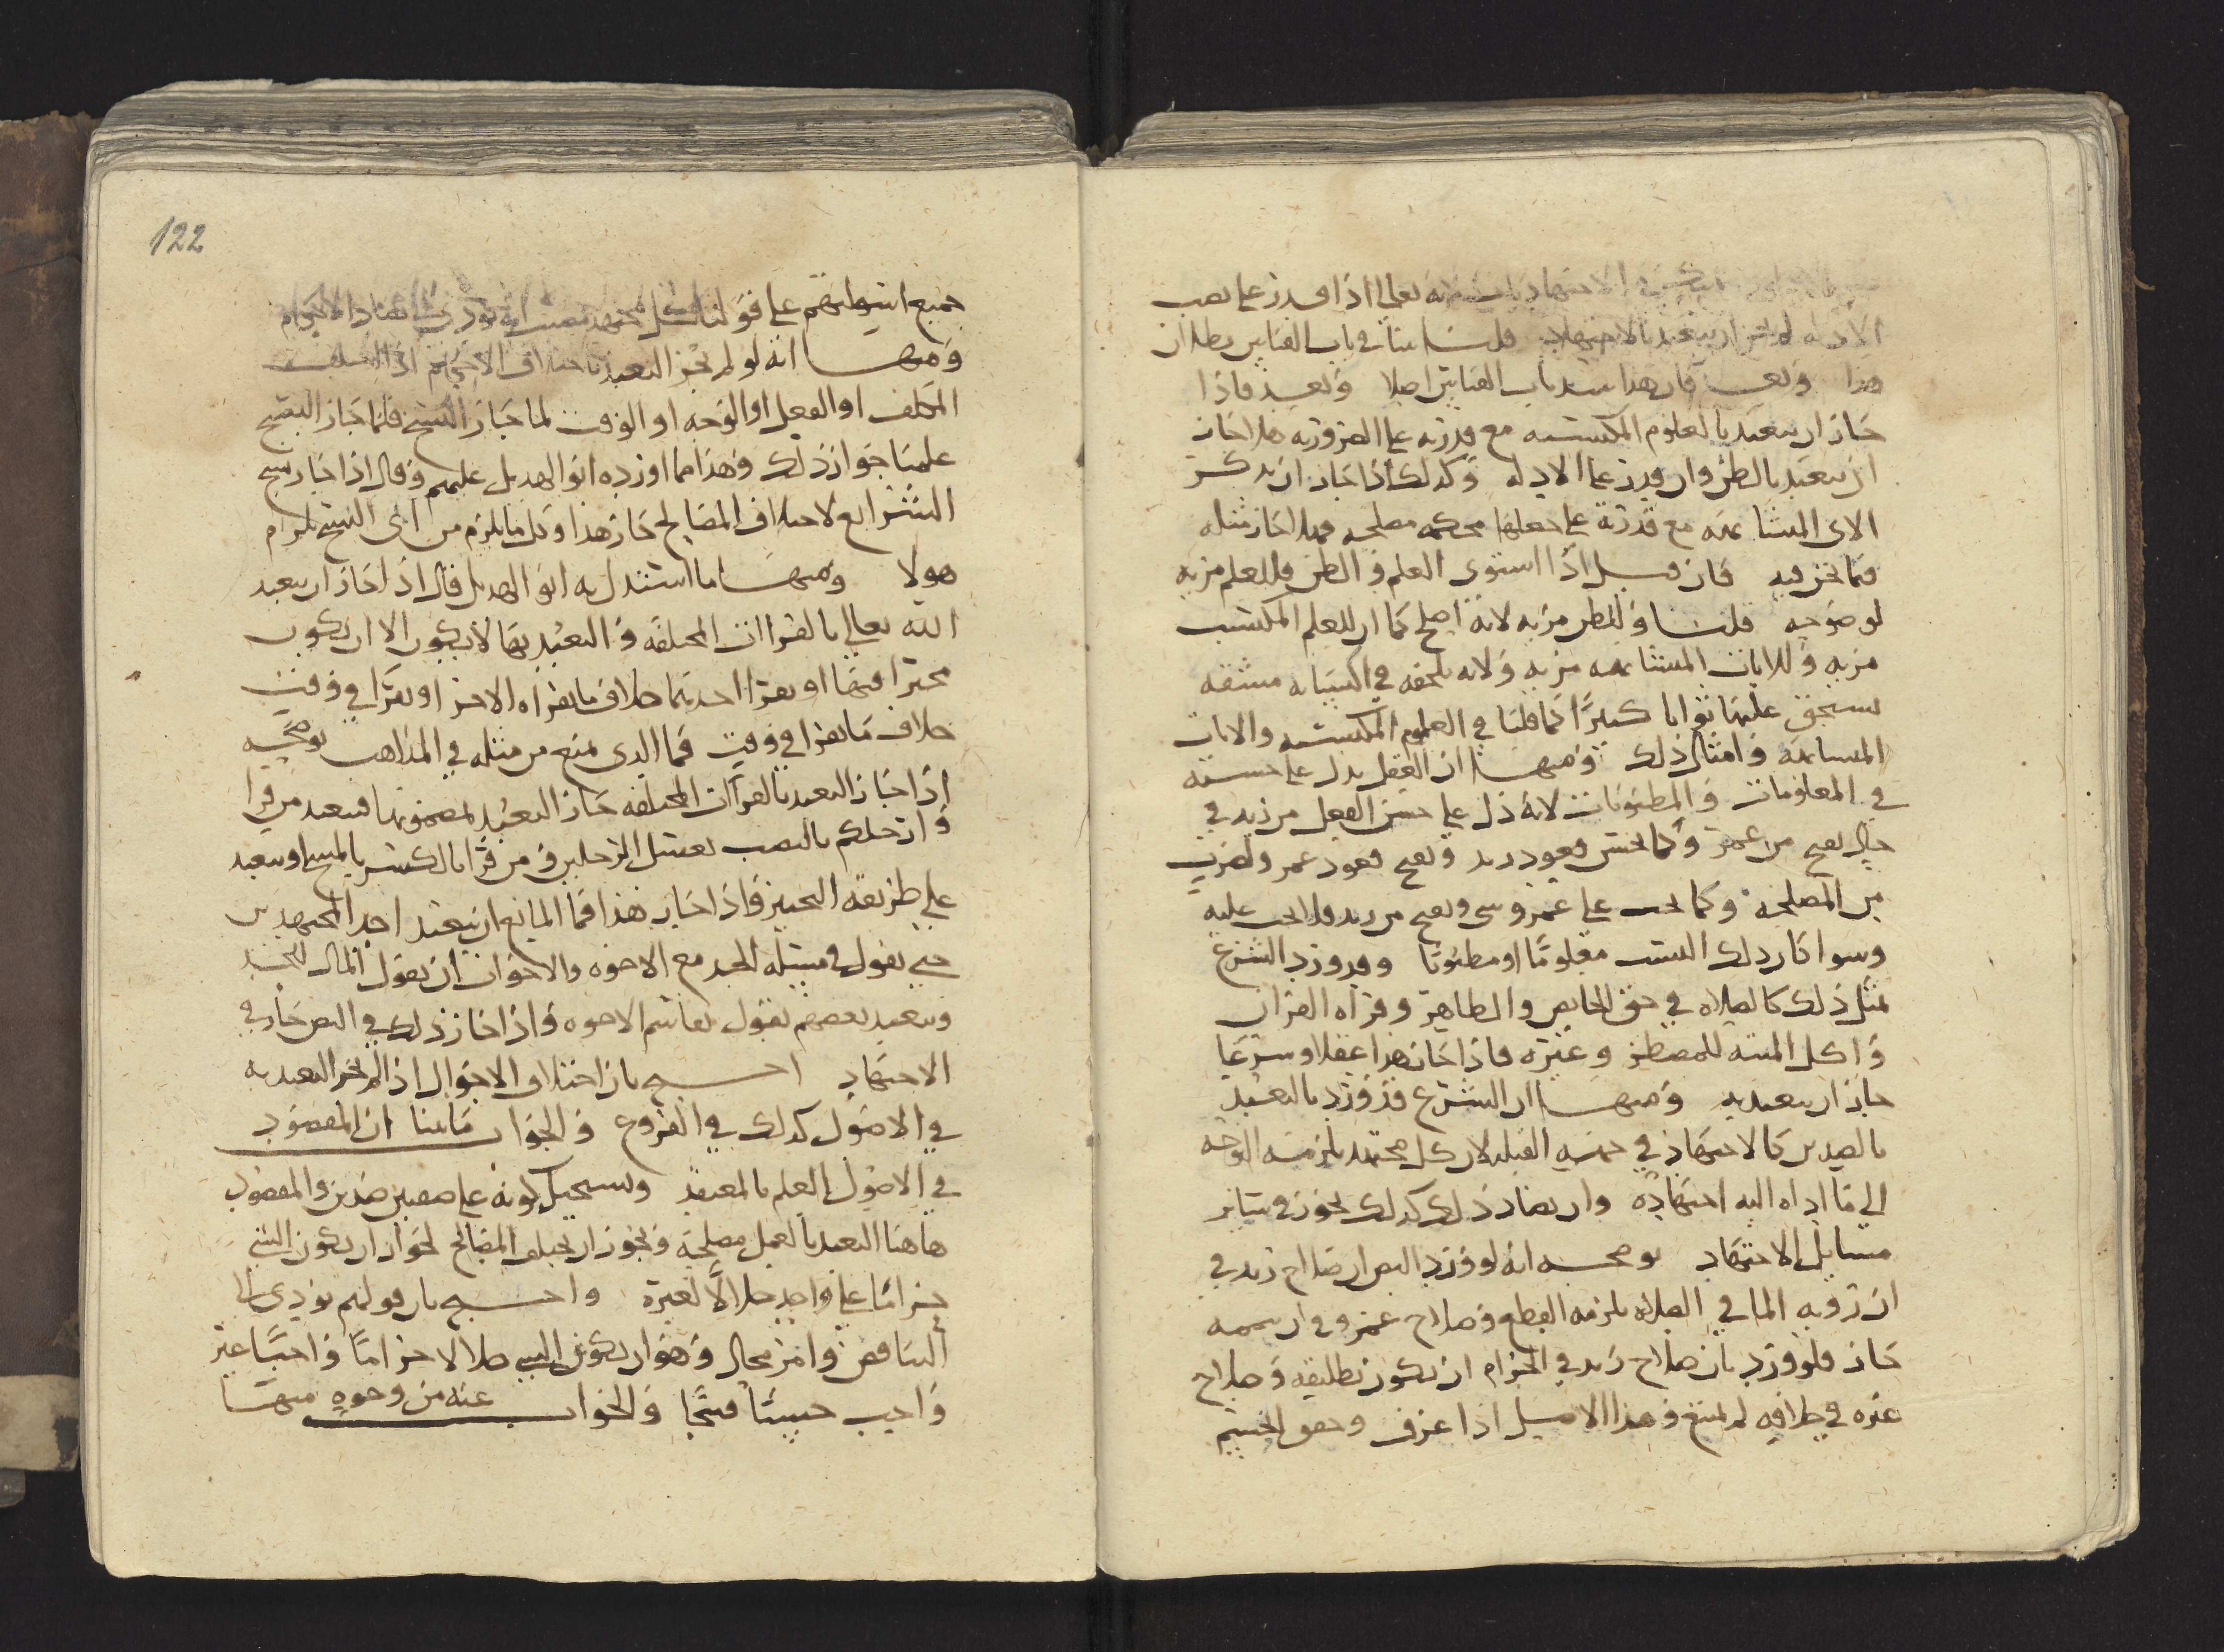 الاجتهاد لانه تعالى اذا قدر على نصب
الادلة لم يجز ان يتعبد بالاجتهاد قلنا بينا في باب القياس بطلان
هذا وبعد فان هذا يسد باب القياس اصلا وبعد فاذا
جاز ان يتعبد بالعلوم المكتسبه مع قدرته على الضروريه هلا جاز
ان يتعبد بالظن وان قدر على الادله وكذلك اذا جاز ان يذكر
الاى المتشابهه مع قدرته على جعلها محكمه مصلحه فهلا جاز مثله
فيما نحن فيه فان قيل اذا استوى العلم والظن فللعلم مزيه
لوضوحه قلنا وللظن مزيه لانه اصلح كما ان للعلم المكتسب
مزيه وللايات المتشابهه مزيه ولانه يلحقه في اكتسابه مشقه
يستحق عليها ثوابا كثيرا كما قلنا في العلوم المكتسبه والايات
المتشابهه وامثال ذلك ومنها ان العقل يدل على حسنه
في المعلومات والمظنونات لانه دل على حسن الفعل من زيد في
حال يقبح من عمرو وكما يحسن قعود زيد ويقبح قعود عمرو لضرب
من المصلحة وكما يجب على عمرو شي ويقبح من زيد ولا يجب عليه
وسوا كان ذلك السبب معلوما او مظنونا وقد ورد الشرع
بمثل ذلك كالصلاه في حق الحايض والطاهر وقراه القران
واكل الميته للمضطر وغيره فاذا جاز هذا عقلا وشرعا
جاز ان يتعبد به ومنها ان الشرع قد ورد بالتعبد
بالضدين كالاجتهاد في جهه القبله لان كل مجتهد يلزمه التوجه
الى ما اداه اليه اجتهاده وان تضاد ذلك كذلك يجوز في سائر
مسايل الاجتهاد يوضحه انه لو ورد النص ان صلاح زيد في
ان رويه الما في الصلاه يلزمه القطع وصلاح عمرو في ان يتمه
جاز فلو ورد بان صلاح زيد في الحرام ان يكون تطليقه وصلاح
غيره في خلافه لم يمتنع وهذا الاصل اذا عرف وحقق انحسم
122
جميع اسولتهم على قولنا كل مجتهد مصيب انه يودي الى تضاد الاحكام
ومنها انه لو لم يجز التعبد باختلاف الاحكام اذا اختلف
المكلف او الفعل او الوجه او الوقت لما جاز النسخ فلما جاز النسخ
علمنا جواز ذلك وهذا مما اورده ابو الهذيل عليهم وقال اذا جاز نسخ
الشرايع لاختلاف المصالح جاز هذا وكل ما يلزم من ابى النسخ يلزم
هولا ومنها ما استدل به ابو الهذيل قال اذا جاز ان يتعبد
الله تعالى بالقراات المختلفه والتعبد بها لا يكون الا ان يكون
مخيرا فيها او يقرا احدهما خلاف ما يقراه الاخر او يقرا في وقت
خلاف ما يقرا في وقت فما الذي يمنع من مثله في المذاهب توضحه
اذا جاز التعبد بالقراات المختلفه جاز التعبد بمضمونها فيتعبد من قرا
وارجلكم بالنصب بغسل الرجلين ومن قرا بالكسر بالمسح او يتعبد
على طريقه التخيير فاذا جاز هذا فما المانع ان يتعبد احد المجتهدين
حتى يقول في مسئله الجد مع الاخوه والاخوات ان يقول المال للجد
ويتعبد بعضهم بقول يقاسم الاخوه واذا جاز ذلك في النص جاز في
الاجتهاد احتج بان اختلاف الاحوال اذا لم يجز التعبد به
في الاصول كذلك في الفروع والجواب ما بينا ان المقصود
في الاصول العلم بالمعتقد ويستحيل كونه على صفتين ضدين والمقصود
هاهنا التعبد بالعمل مصلحة ويجوز ان تختلف المصالح لجواز ان يكون الشي
حراما على واحد حلالا لغيره واحتج بان قولهم يودي الى
التناقض وامر محال وهو ان يكون الشي حلالا حراما واجبا غير
واجب حسنا قبيحا والجواب عنه من وجوه منها